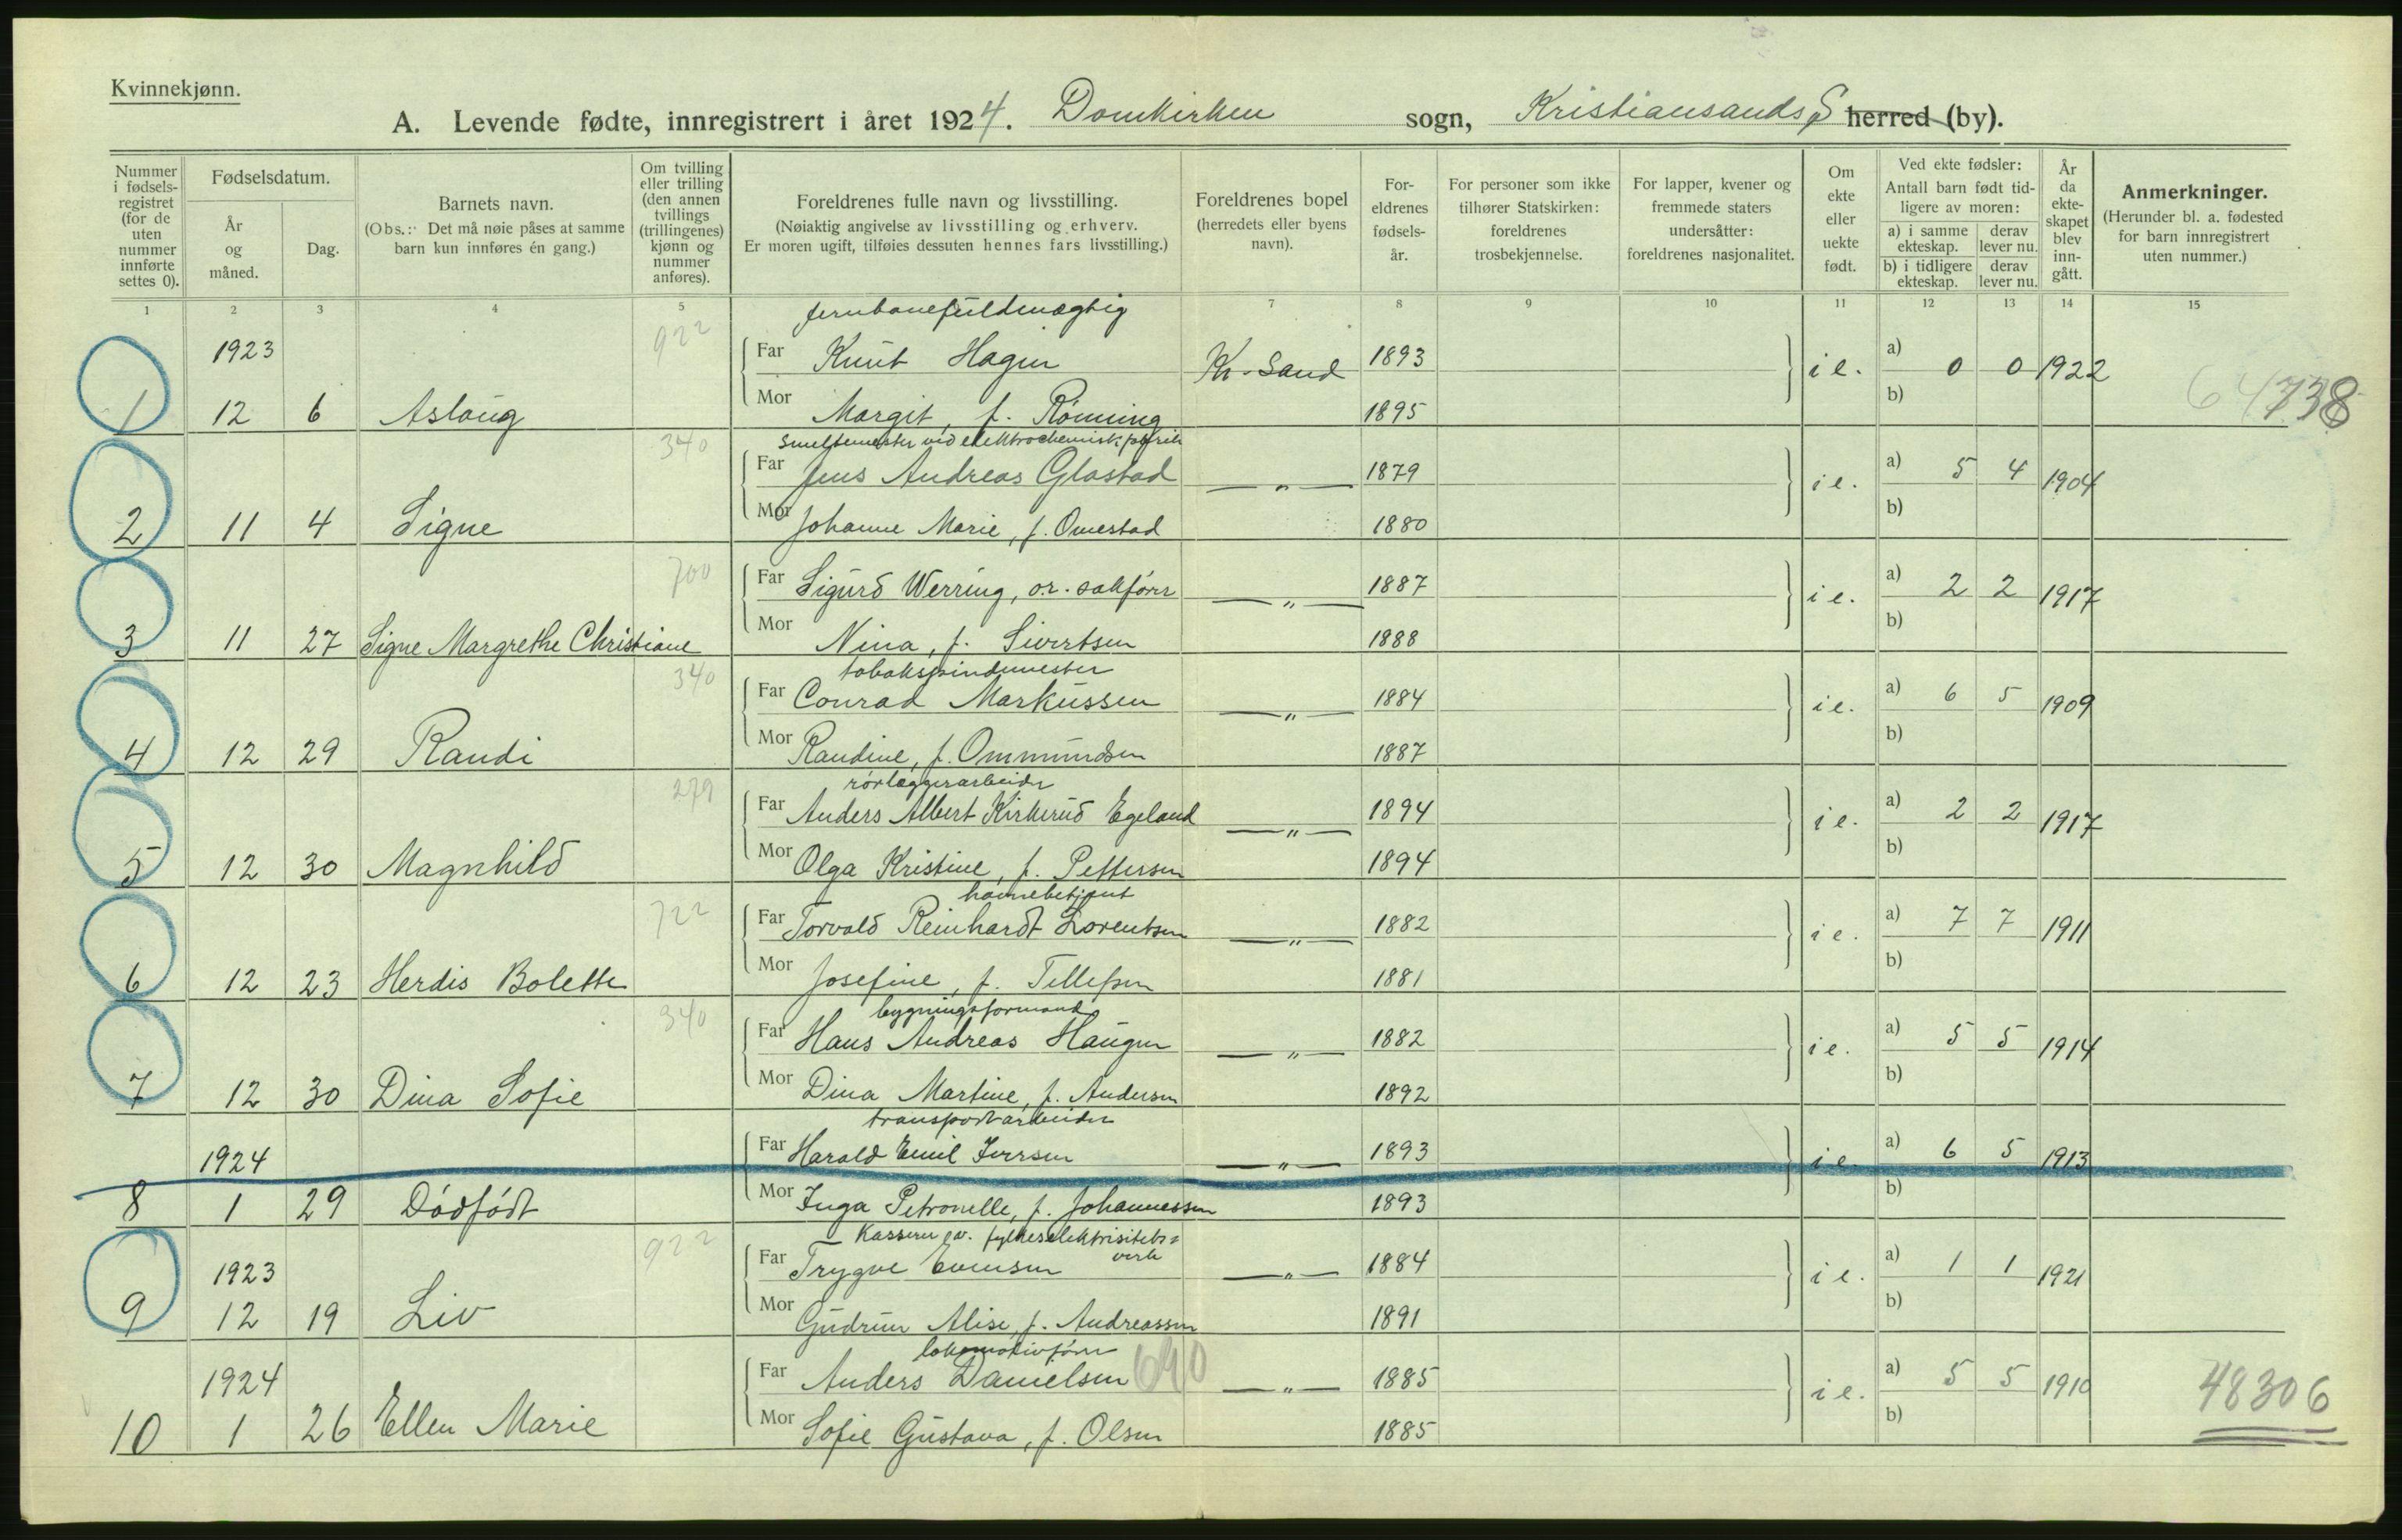 Kvinnekjønn.
A. Levende fødte, innregistrert i året 1924. Domkirken sogn, Kristiansands S herred (by).
Nummer i fødsels-registret (for de uten nummer innførte settes 0).
Fødselsdatum.
År og måned.
Dag.
Barnets navn.
(Obs.: Det må nøie påses at samme barn kun innføres én gang.)
Om tvilling eller trilling (den annen tvillings (trillingenes) kjønn og nummer anføres).
Foreldrenes fulle navn og livsstilling.
(Nøiaktig angivelse av livsstilling og erhverv.
Er moren ugift, tilføies dessuten hennes fars livsstilling.)
Foreldrenes bopel
(herredets eller byens navn).
For-eldrenes fødsels-år.
For personer som ikke tilhører Statskirken: foreldrenes trosbekjennelse.
For lapper, kvener og fremmede staters undersåtter: foreldrenes nasjonalitet.
Om ekte eller uekte født.
Ved ekte fødsler:
Antall barn født tid-ligere av moren:
a) i samme ekteskap.
derav lever nu.
b) i tidligere ekteskap.
derav lever nu.
År da ekte-skapet blev inn-gått.
Anmerkninger.
(Herunder bl. a. fødested for barn innregistrert uten nummer.)
1 2 3 4 5 7 8 9 10 11 12 13 14 15
jernbanefuldmægtig
922
1923 Far Knut Hagen Kr-Sand 1893 i e. a) 0 0 1922
b)
1 12 6 Aslaug Mor Margit, f. Rönning 1895
64738
340
smeltemester vid elektrochemisk fabrik
Far Jens Andreas Glastad —„— 1879 i e. a) 5 4 1904
b)
2 11 4 Signe Mor Johanne Marie, f. Omestad 1880
700
Far Sigurd Werring, o.r. sakförer —„— 1887 i e. a) 2 2 1917
b)
3 11 27 Signe Margrethe Christiane Mor Nina, f. Sivertsen 1888
340
tobakspindemester
Far Conrad Markussen —„— 1884 i e. a) 6 5 1909
b)
4 12 29 Randi Mor Randine, f. Ommundsen 1887
279
rörlæggerarbeider
Far Anders Albert Kirkerud Egeland —„— 1894 i e. a) 2 2 1917
b)
5 12 30 Magnhild Mor Olga Kristine, f. Pettersen 1894
722
havnebetjent
Far Torvald Reinhardt Lorentsen —„— 1882 i e. a) 7 7 1911
b)
6 12 23 Herdis Bolette Mor Josefine, f. Tellefsen 1881
340
bygningsformand
Far Hans Andreas Haugen —„— 1882 i e. a) 5 5 1914
b)
7 12 30 Dina Sofie Mor Dina Martine, f. Andersen 1892
transportarbeider
1924 Far Harald Emil Iversen —„— 1893 i e. a) 6 5 1913
b)
8 1 29 Dödfödt Mor Inga Petronelle, f. Johannessen 1893
922
Kasserer av. fylkeselektrisitets=
verk
1923 Far Trygve Evensen —„— 1884 i e. a) 1 1 1921
b)
9 12 19 Liv Mor Gudrun Alise, f. Andreassen 1891
lokomotivförer
1924 Far Anders Danielsen 690 —„— 1885 i e. a) 5 5 1910
b)
10 1 26 Ellen Marie Mor Sofie Gustava, f. Olsen 1885
48306